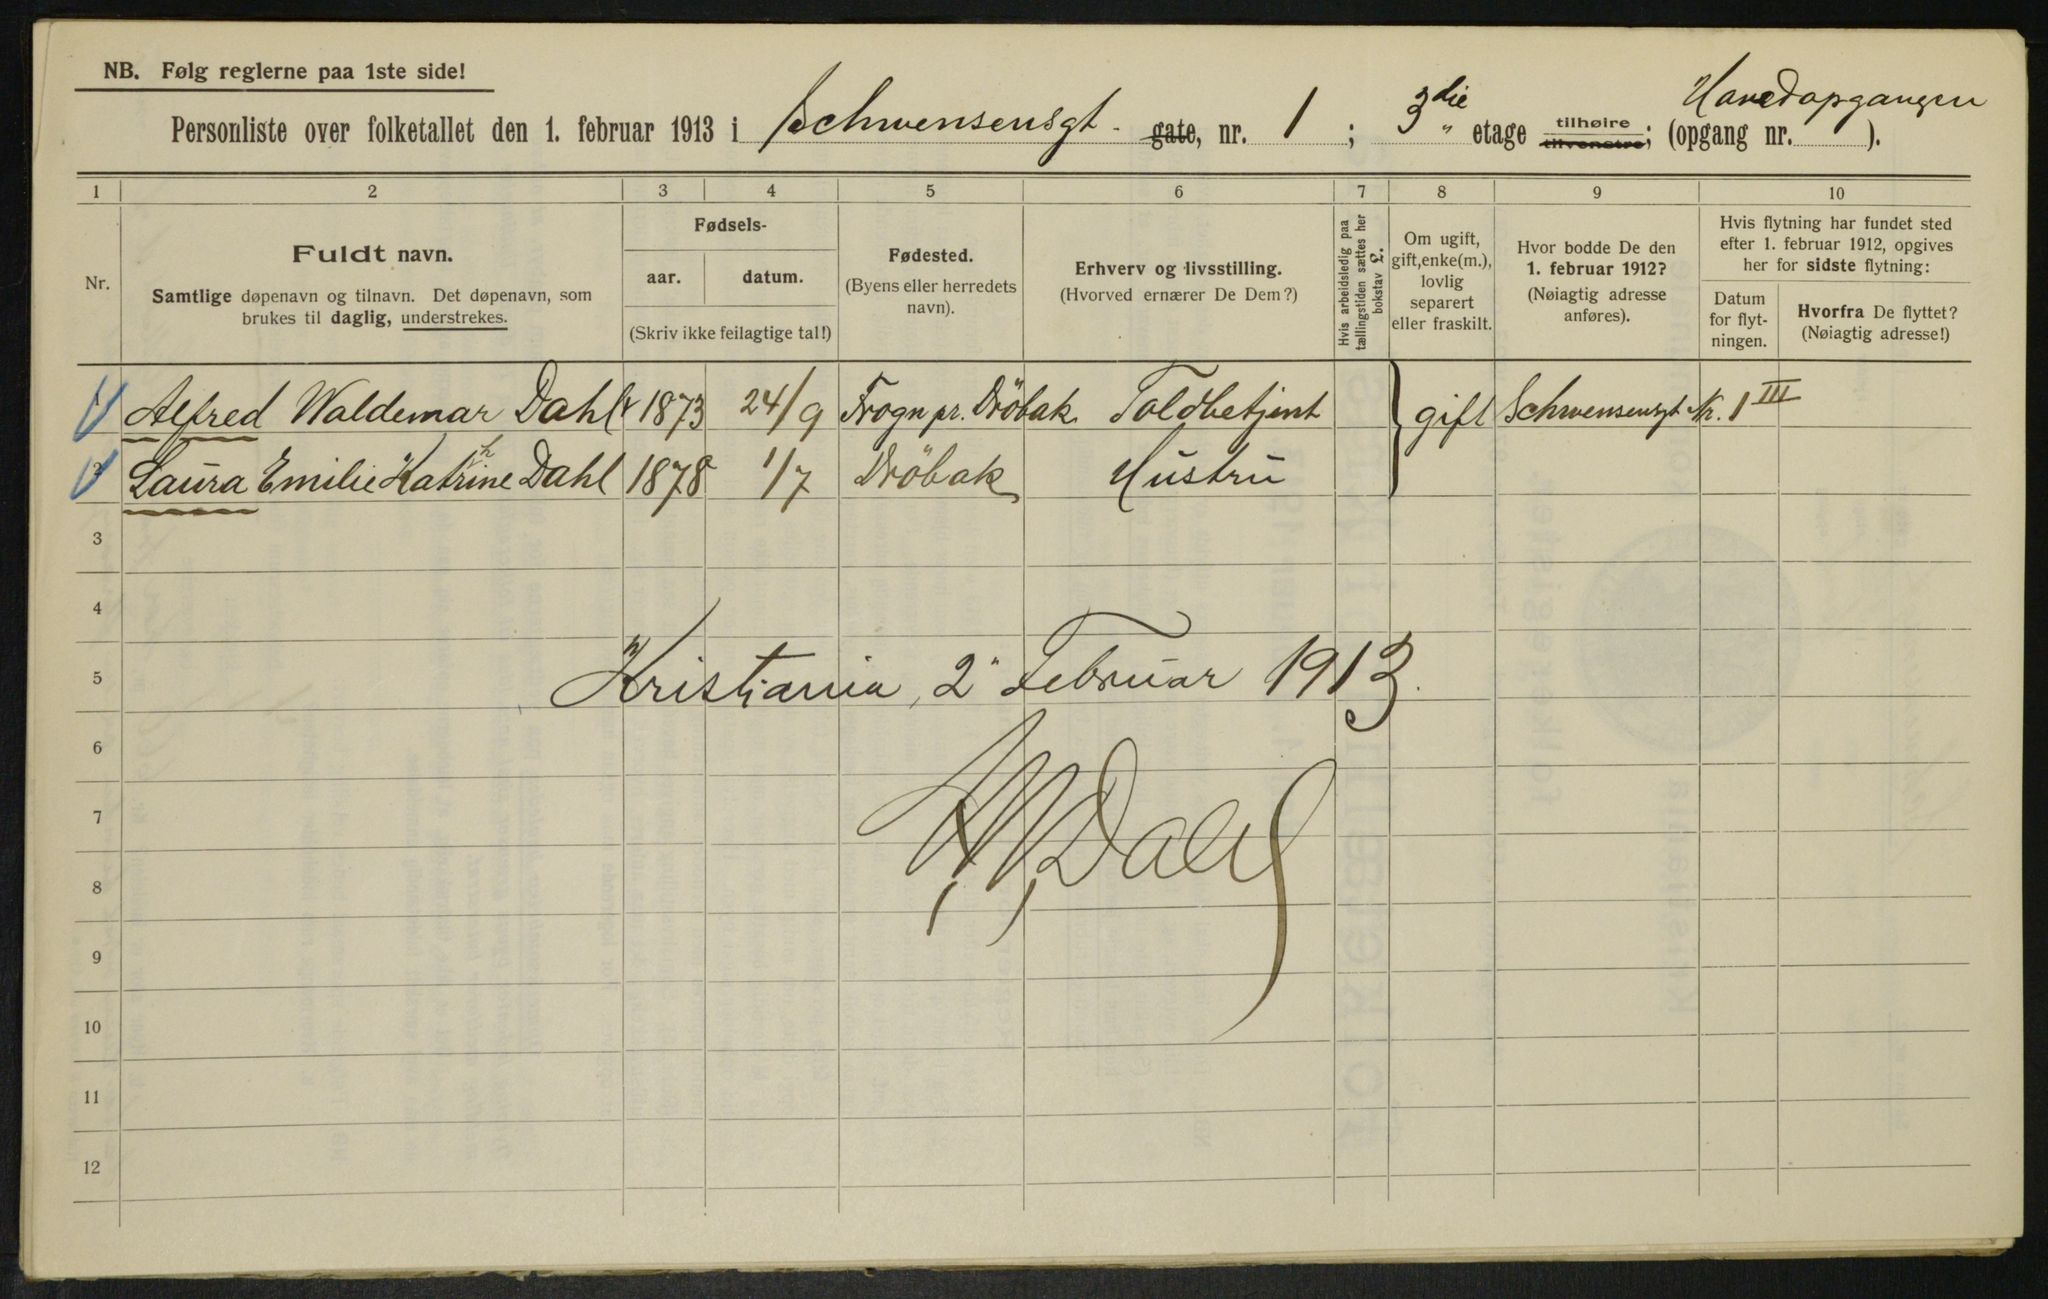 NB. Følg reglerne paa 1ste side!
Personliste over folketallet den 1. februar 1913 i Schwensensgt. gate, nr. 1; 3die etage tilhøire tilvenstre; (opgang nr. Hovedopgangen ).
1 2 3 4 5 6 7 8 9 10
Nr.
Fuldt navn.
Samtlige døpenavn og tilnavn. Det døpenavn, som
brukes til daglig, understrekes.
Fødsels-
aar. datum.
(Skriv ikke feilagtige tal!)
Fødested.
(Byens eller herredets
navn).
Erhverv og livsstilling.
(Hvorved ernærer De Dem?)
Hvis arbeidsledig paa
tællingstiden sættes her
bokstav L.
Om ugift,
gift, enke(m.),
lovlig
separert
eller fraskilt.
Hvor bodde De den
1. februar 1912?
(Nøiagtig adresse
anføres).
Hvis flytning har fundet sted
efter 1. februar 1912, opgives
her for sidste flytning:
Datum
for flyt-
ningen.
Hvorfra De flyttet?
(Nøiagtig adresse!)
1 Alfred Waldemar Dahl 1873 24/9 Frogn pr. Dröbak Toldbetjent gift Schwensensgt Nr. 1 III
2 Laura Emilie Kathrine Dahl 1878 1/7 Dröbak Hustru
3
4
5 Kristiania, 2" Februar 1913.
6
7
A. W. Dahl
8
9
10
11
12